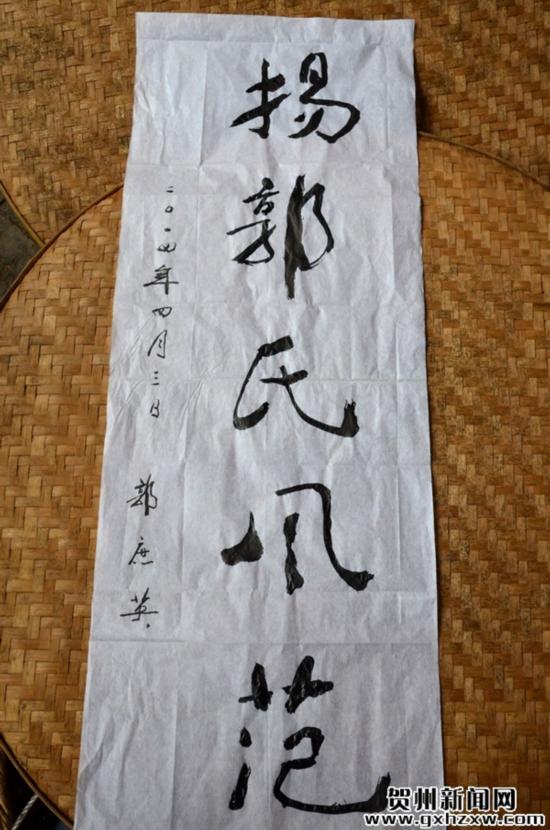 揚郭氏风范
二〇一四年四月三日 郭庶英
贺州新闻网
www.gxhzxw.com